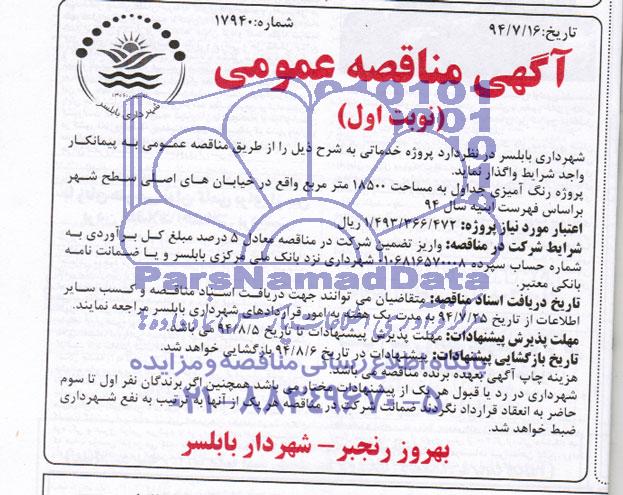 تاریخ: ۹۴/۷/۱۶
شماره: ۱۷۹۴۰
شهرداری بابلسر
آگهی مناقصه عمومی
(نوبت اول)
شهرداری بابلسر در نظر دارد پروژه خدماتی به شرح ذیل را از طریق مناقصه عمومی به پیمانکار
واجد شرایط واگذار نماید.
پروژه رنگ آمیزی جداول به مساحت ۱۸۵۰۰ متر مربع واقع در خیابان های اصلی سطح شهر
براساس فهرست ابنیه سال ۹۴
اعتبار مورد نیاز پروژه: ۱/۴۹۳/۳۶۶/۴۷۲ ریال
شرایط شرکت در مناقصه: واریز تضمین شرکت در مناقصه معادل ۵ درصد مبلغ کل برآوردی به
شماره حساب سپرده ۰۱۰۶۸۱۶۵۷۰۰۰۸ شهرداری نزد بانک ملی مرکزی بابلسر و یا ضمانت نامه
بانکی معتبر.
ParsNamadData
تاریخ دریافت اسناد مناقصه: متقاضیان می توانند جهت دریافت اسناد مناقصه و کسب سایر
اطلاعات از تاریخ ۹۴/۷/۲۵ به مدت یک هفته به امور قراردادهای شهرداری بابلسر مراجعه نمایند.
مهلت پذیرش پیشنهادات: مهلت پذیرش پیشنهادات تا تاریخ ۹۴/۸/۵ می باشد.
تاریخ بازگشایی پیشنهادات: پیشنهادات در تاریخ ۹۴/۸/۶ بازگشایی خواهد شد.
هزینه چاپ آگهی بعهده برنده مناقصه می باشد.
پایگاه اطلاع رسانی مناقصه و مزایده
شهرداری در رد یا قبول هر یک از پیشنهادات مختار می باشد همچنین اگر برندگان نفر اول تا سوم
حاضر به انعقاد قرارداد نگردند ضمانت شرکت در مناقصه هر یک از آنها به ترتیب به نفع شهرداری
ضبط خواهد شد.
۰۲۱-۸۸۳۴۹۶۷۰-۵
بهروز رنجبر - شهردار بابلسر